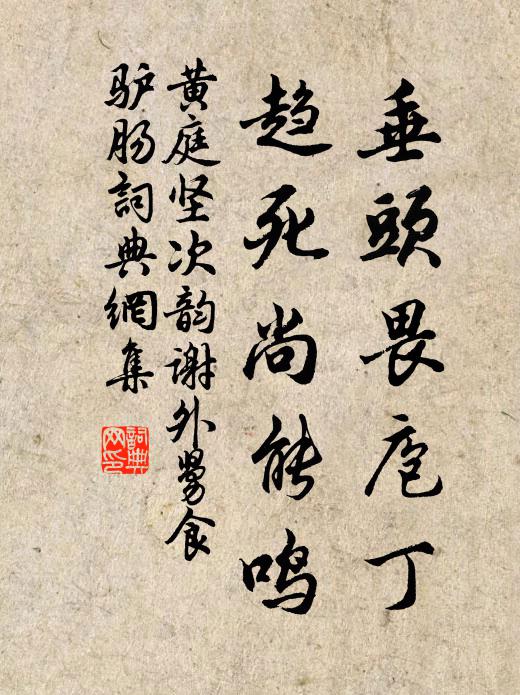 垂頭畏庖丁
趋死尚能鸣
黄庭坚次韵谢外舅食
驴肠詞典網集
詞典
网印